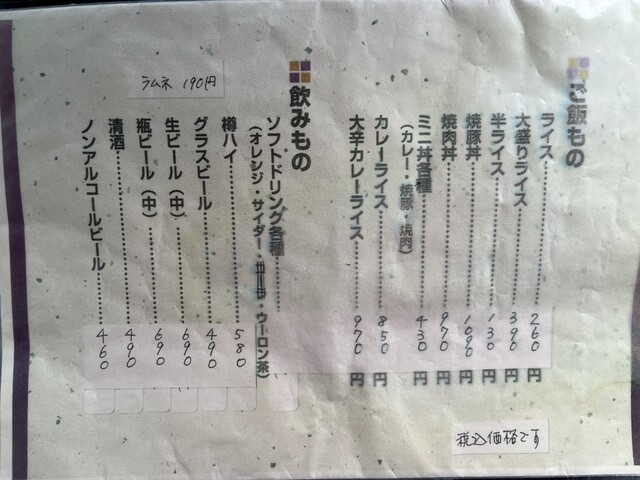 ご飯もの
ライス 260円
大盛りライス 390円
半ライス 130円
焼豚丼 1090円
焼肉丼 970円
ミニ丼各種 430円
(カレー・焼豚・焼肉)
カレーライス 850円
大辛カレーライス 970円
飲みもの
ラムネ 190円
ソフトドリンク各種
(オレンジ・サイダー・ウーロン茶)
樽ハイ 580
グラスビール 490
生ビール(中) 690
瓶ビール(中) 690
清酒 490
ノンアルコールビール 460
税込価格です